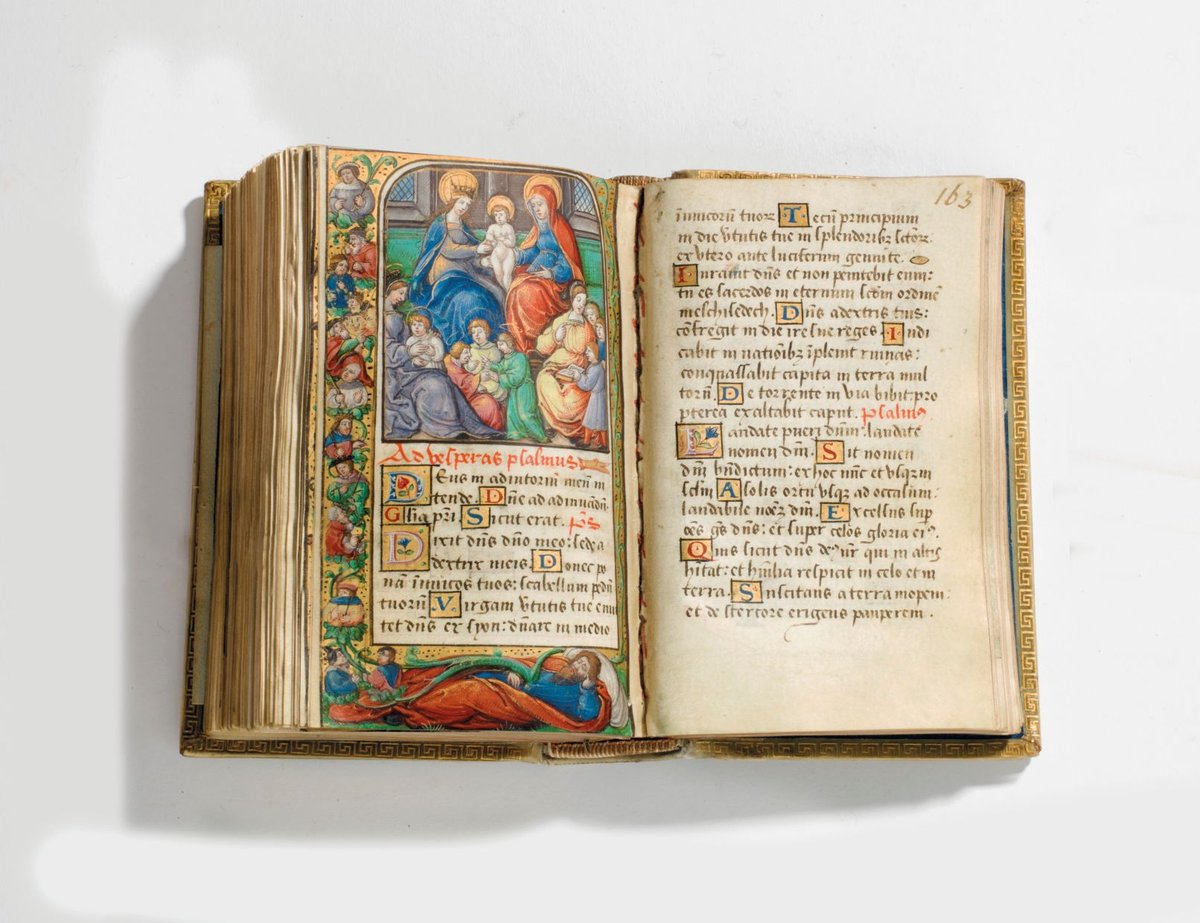 Ad vesperas psalmus
Deus in adiutoriũ meũ in
tende. Dñe ad adiuuãdũ
Glia pri. Sicut erat. ps
Dixit dñs dño meo: sede a
dextris meis. Donec po
nã inimicos tuos: scabellum pedũ
tuorũ Virgam vtutis tue emit
tet dñs ex syon: dñare in medio
163
inimicorũ tuorꝝ Tecũ principium
in die vtutis tue in splendoribꝫ sctorꝝ
ex vtero ante luciferum genui te.
Iurauit dñs et non penitebit eum:
tu es sacerdos in eternum scdm ordinẽ
melchisedech. Dñs a dextris tuis:
cõfregit in die ire sue reges. Iudi
cabit in nationibꝫ ĩplebit ruinas:
conquassabit capita in terra mul
torũ. De torrente in via bibit: pro
pterea exaltabit caput. psalmus
Laudate pueri dñm: laudate
nomen dñi. Sit nomen
dñi bñdictum: ex hoc nũc et vsqꝫ in
sclm A solis ortu vsqꝫ ad occasum:
laudabile nomẽ dñi. Excelsus sup
oẽs gẽs dñs: et super celos gloria eiꝰ.
Quis sicut dñs deꝰ nr̃ qui in altis
hĩtat: et hũilia respicit in celo et in
terra. Suscitans a terra inopem:
et de stercore erigens pauperem.